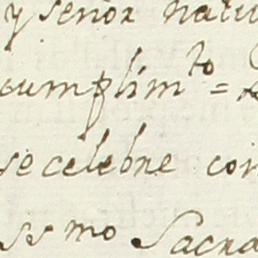 y señor natu
cumplim^to =
se celebre con
ss^mo Sacra